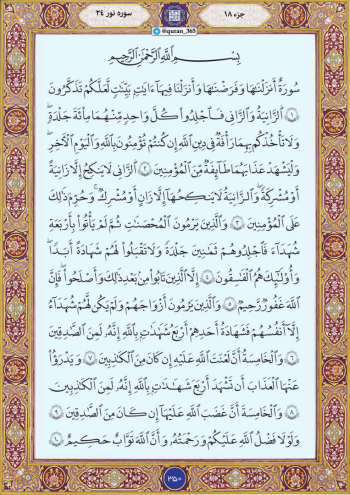 جزء ۱۸
سوره نور ۲۴
@quran_365
بِسْمِ اللَّهِ الرَّحْمَٰنِ الرَّحِيمِ
سُورَةٌ أَنزَلْنَاهَا وَفَرَضْنَاهَا وَأَنزَلْنَا فِيهَا آيَاتٍ بَيِّنَاتٍ لَّعَلَّكُمْ تَذَكَّرُونَ
۱ الزَّانِيَةُ وَالزَّانِي فَاجْلِدُوا كُلَّ وَاحِدٍ مِّنْهُمَا مِائَةَ جَلْدَةٍ
وَلَا تَأْخُذْكُم بِهِمَا رَأْفَةٌ فِي دِينِ اللَّهِ إِن كُنتُمْ تُؤْمِنُونَ بِاللَّهِ وَالْيَوْمِ الْآخِرِ
وَلْيَشْهَدْ عَذَابَهُمَا طَائِفَةٌ مِّنَ الْمُؤْمِنِينَ ۲ الزَّانِي لَا يَنكِحُ إِلَّا زَانِيَةً
أَوْ مُشْرِكَةً وَالزَّانِيَةُ لَا يَنكِحُهَا إِلَّا زَانٍ أَوْ مُشْرِكٌ وَحُرِّمَ ذَٰلِكَ
عَلَى الْمُؤْمِنِينَ ۳ وَالَّذِينَ يَرْمُونَ الْمُحْصَنَاتِ ثُمَّ لَمْ يَأْتُوا بِأَرْبَعَةِ
شُهَدَاءَ فَاجْلِدُوهُمْ ثَمَانِينَ جَلْدَةً وَلَا تَقْبَلُوا لَهُمْ شَهَادَةً أَبَدًا
وَأُولَٰئِكَ هُمُ الْفَاسِقُونَ ۴ إِلَّا الَّذِينَ تَابُوا مِن بَعْدِ ذَٰلِكَ وَأَصْلَحُوا فَإِنَّ
اللَّهَ غَفُورٌ رَّحِيمٌ ۵ وَالَّذِينَ يَرْمُونَ أَزْوَاجَهُمْ وَلَمْ يَكُن لَّهُمْ شُهَدَاءُ
إِلَّا أَنفُسُهُمْ فَشَهَادَةُ أَحَدِهِمْ أَرْبَعُ شَهَادَاتٍ بِاللَّهِ إِنَّهُ لَمِنَ الصَّادِقِينَ
۶ وَالْخَامِسَةُ أَنَّ لَعْنَتَ اللَّهِ عَلَيْهِ إِن كَانَ مِنَ الْكَاذِبِينَ ۷ وَيَدْرَؤُا
عَنْهَا الْعَذَابَ أَن تَشْهَدَ أَرْبَعَ شَهَادَاتٍ بِاللَّهِ إِنَّهُ لَمِنَ الْكَاذِبِينَ
۸ وَالْخَامِسَةَ أَنَّ غَضَبَ اللَّهِ عَلَيْهَا إِن كَانَ مِنَ الصَّادِقِينَ ۹
وَلَوْلَا فَضْلُ اللَّهِ عَلَيْكُمْ وَرَحْمَتُهُ وَأَنَّ اللَّهَ تَوَّابٌ حَكِيمٌ ۱۰
۳۵۰